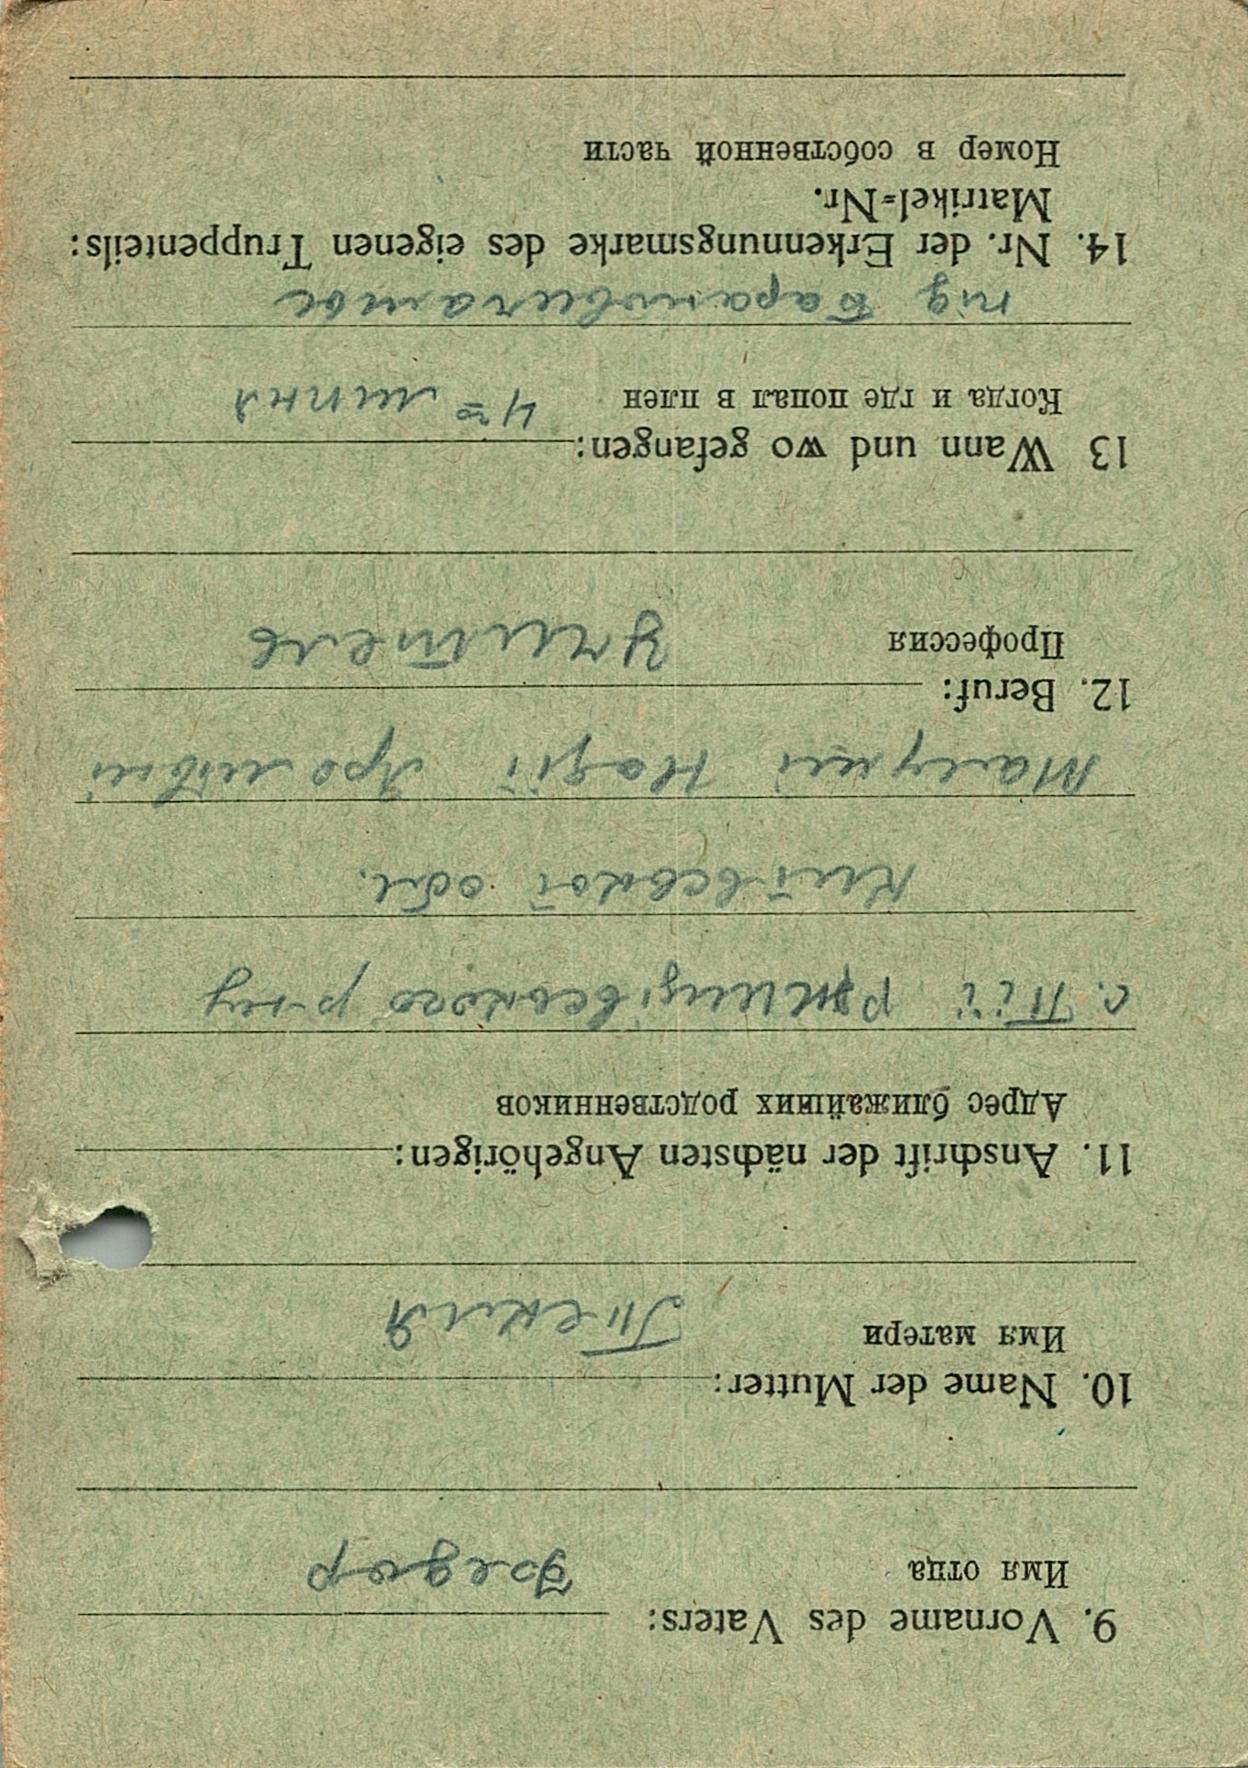 9. Vorname des Vaters:
Имя отца Федор
10. Name der Mutter:
Имя матери Текля
11. Anschrift der nächsten Angehörigen:
Адрес ближайших родственников
с. Пії Ржищівського р-ну
Київської обл.
Надії
12. Beruf:
Профессия Учитель
13 Wann und wo gefangen:
Когда и где попал в плен 4го липня
під Барановичами
14. Nr. der Erkennungsmarke des eigenen Truppenteils:
Matrikel=Nr.
Номер в собственной части